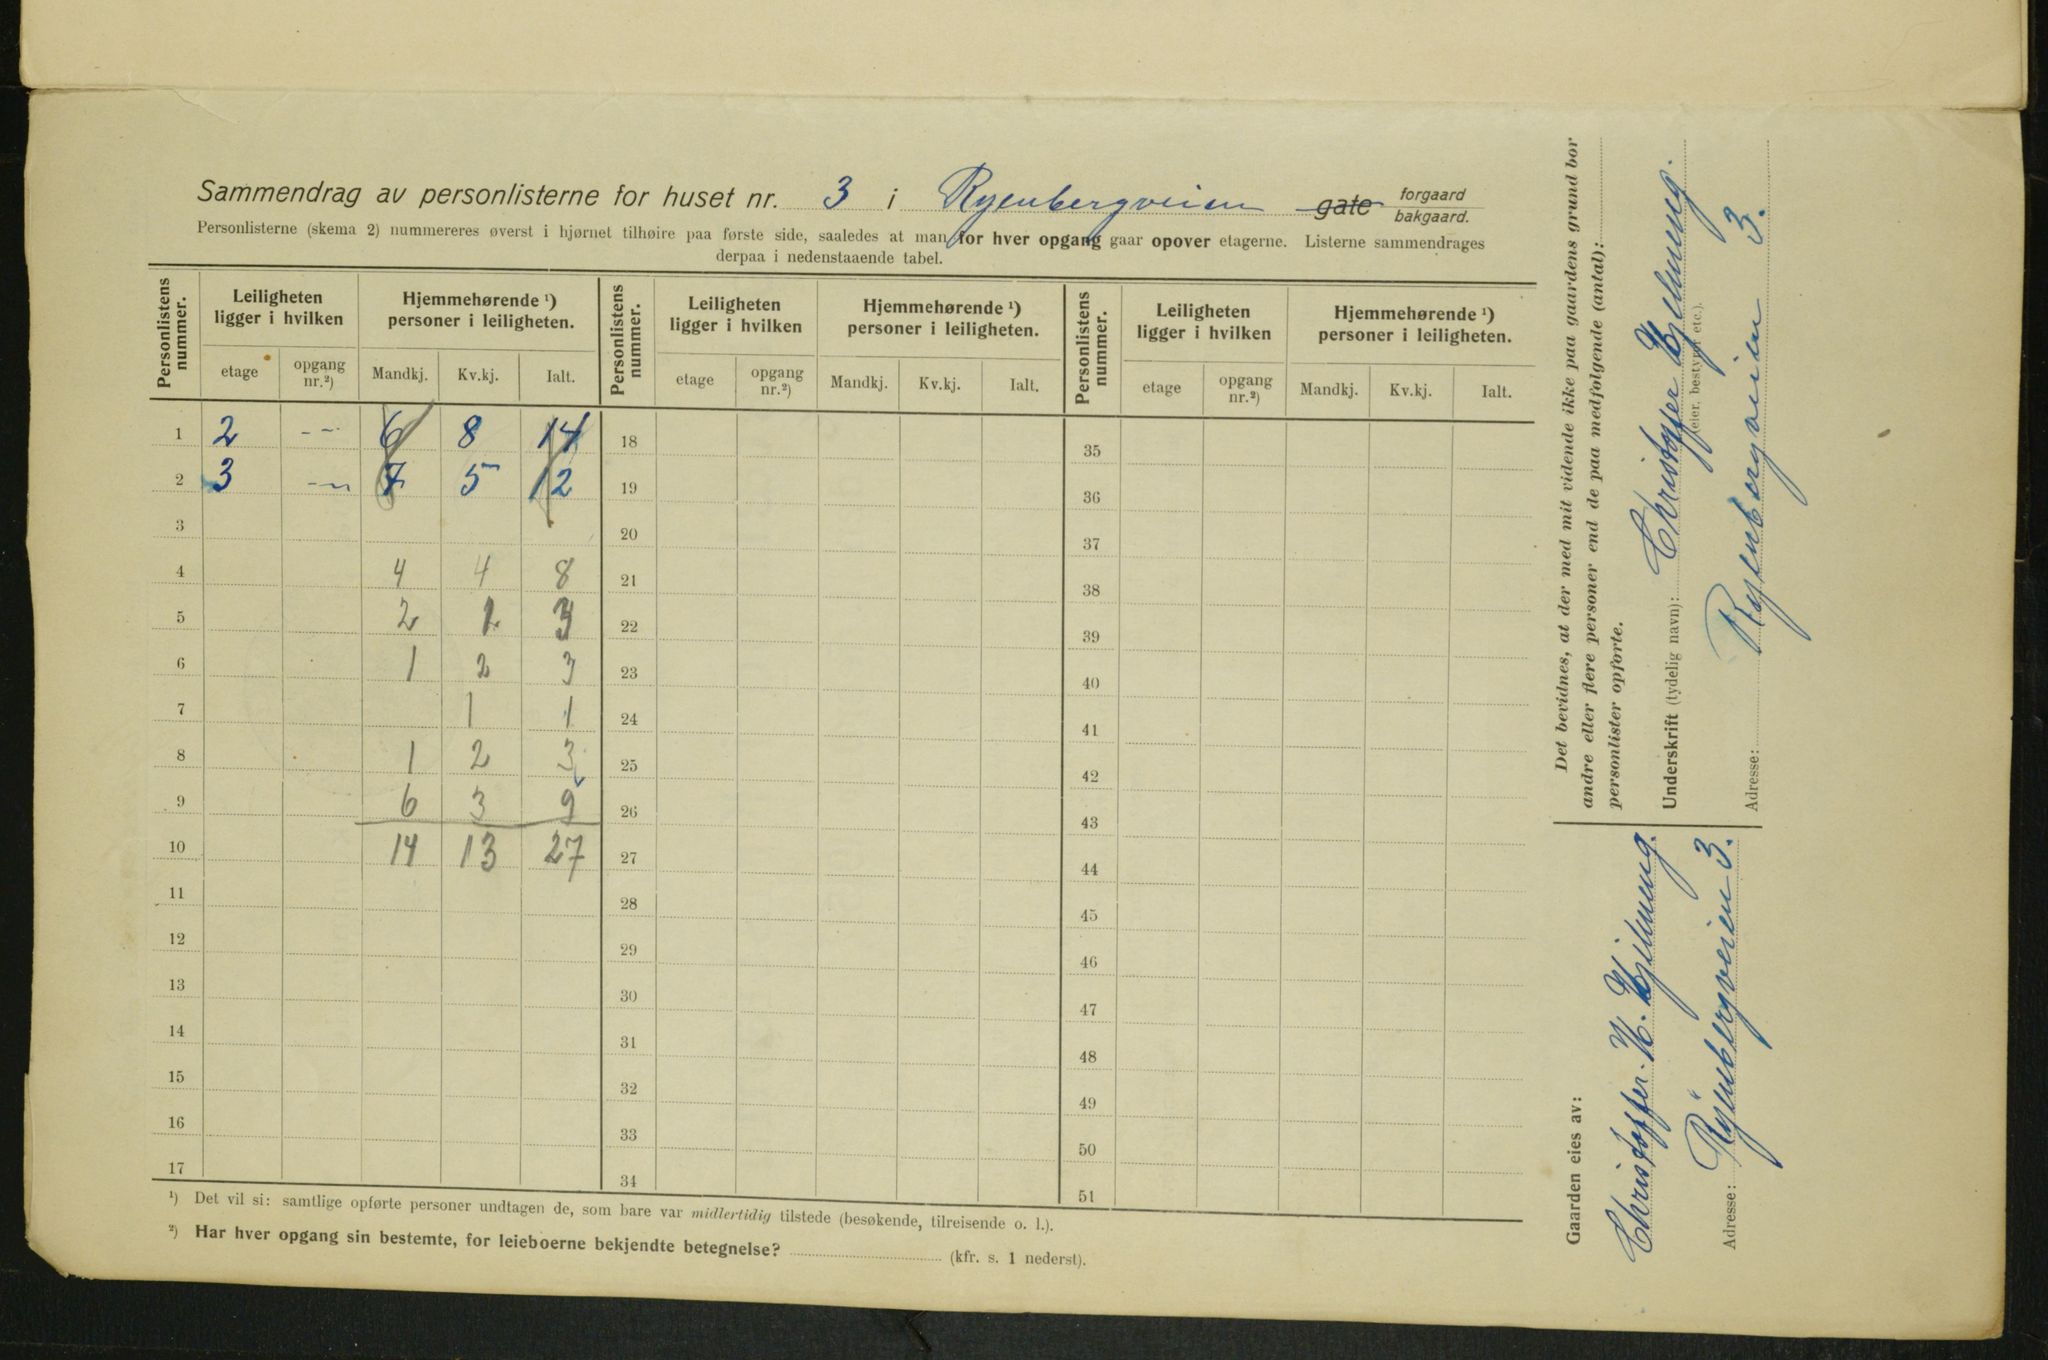 Sammendrag av personlisterne for huset nr. 3 i Ryenbergveien gate forgaard bakgaard.
Personlisterne (skema 2) nummereres øverst i hjørnet tilhøire paa første side, saaledes at man for hver opgang gaar opover etagerne. Listerne sammendrages
derpaa i nedenstaaende tabel.
Personlistens nummer. Leiligheten ligger i hvilken Hjemmehørende ¹) personer i leiligheten. Personlistens nummer. Leiligheten ligger i hvilken Hjemmehørende ¹) personer i leiligheten. Personlistens nummer. Leiligheten ligger i hvilken Hjemmehørende ¹) personer i leiligheten.
etage opgang nr.²) Mandkj. Kv.kj. Ialt. etage opgang nr.²) Mandkj. Kv.kj. Ialt. etage opgang nr.²) Mandkj. Kv.kj. Ialt.
1 2 -- 6 8 14 18 35
2 3 -- 7 5 12 19 36
3 20 37
4 4 4 8 21 38
5 2 1 3 22 39
6 1 2 3 23 40
7 1 1 24 41
8 1 2 3 25 42
9 6 3 9 26 43
10 14 13 27 27 44
11 28 45
12 29 46
13 30 47
14 31 48
15 32 49
16 33 50
17 34 51
¹) Det vil si: samtlige opførte personer undtagen de, som bare var midlertidig tilstede (besøkende, tilreisende o. l.).
²) Har hver opgang sin bestemte, for leieboerne bekjendte betegnelse? (kfr. s. 1 nederst).
Det bevidnes, at der med mit vidende ikke paa gaardens grund bor
andre eller flere personer end de paa medfølgende (antal):
personlister opførte.
Underskrift (tydelig navn): Christoffer Hjelmeng.
(eier, bestyrer etc.).
Adresse: Ryenbergveien 3.
Gaarden eies av:
Christoffer N. Hjelmeng.
Adresse: Ryenbergveien 3.